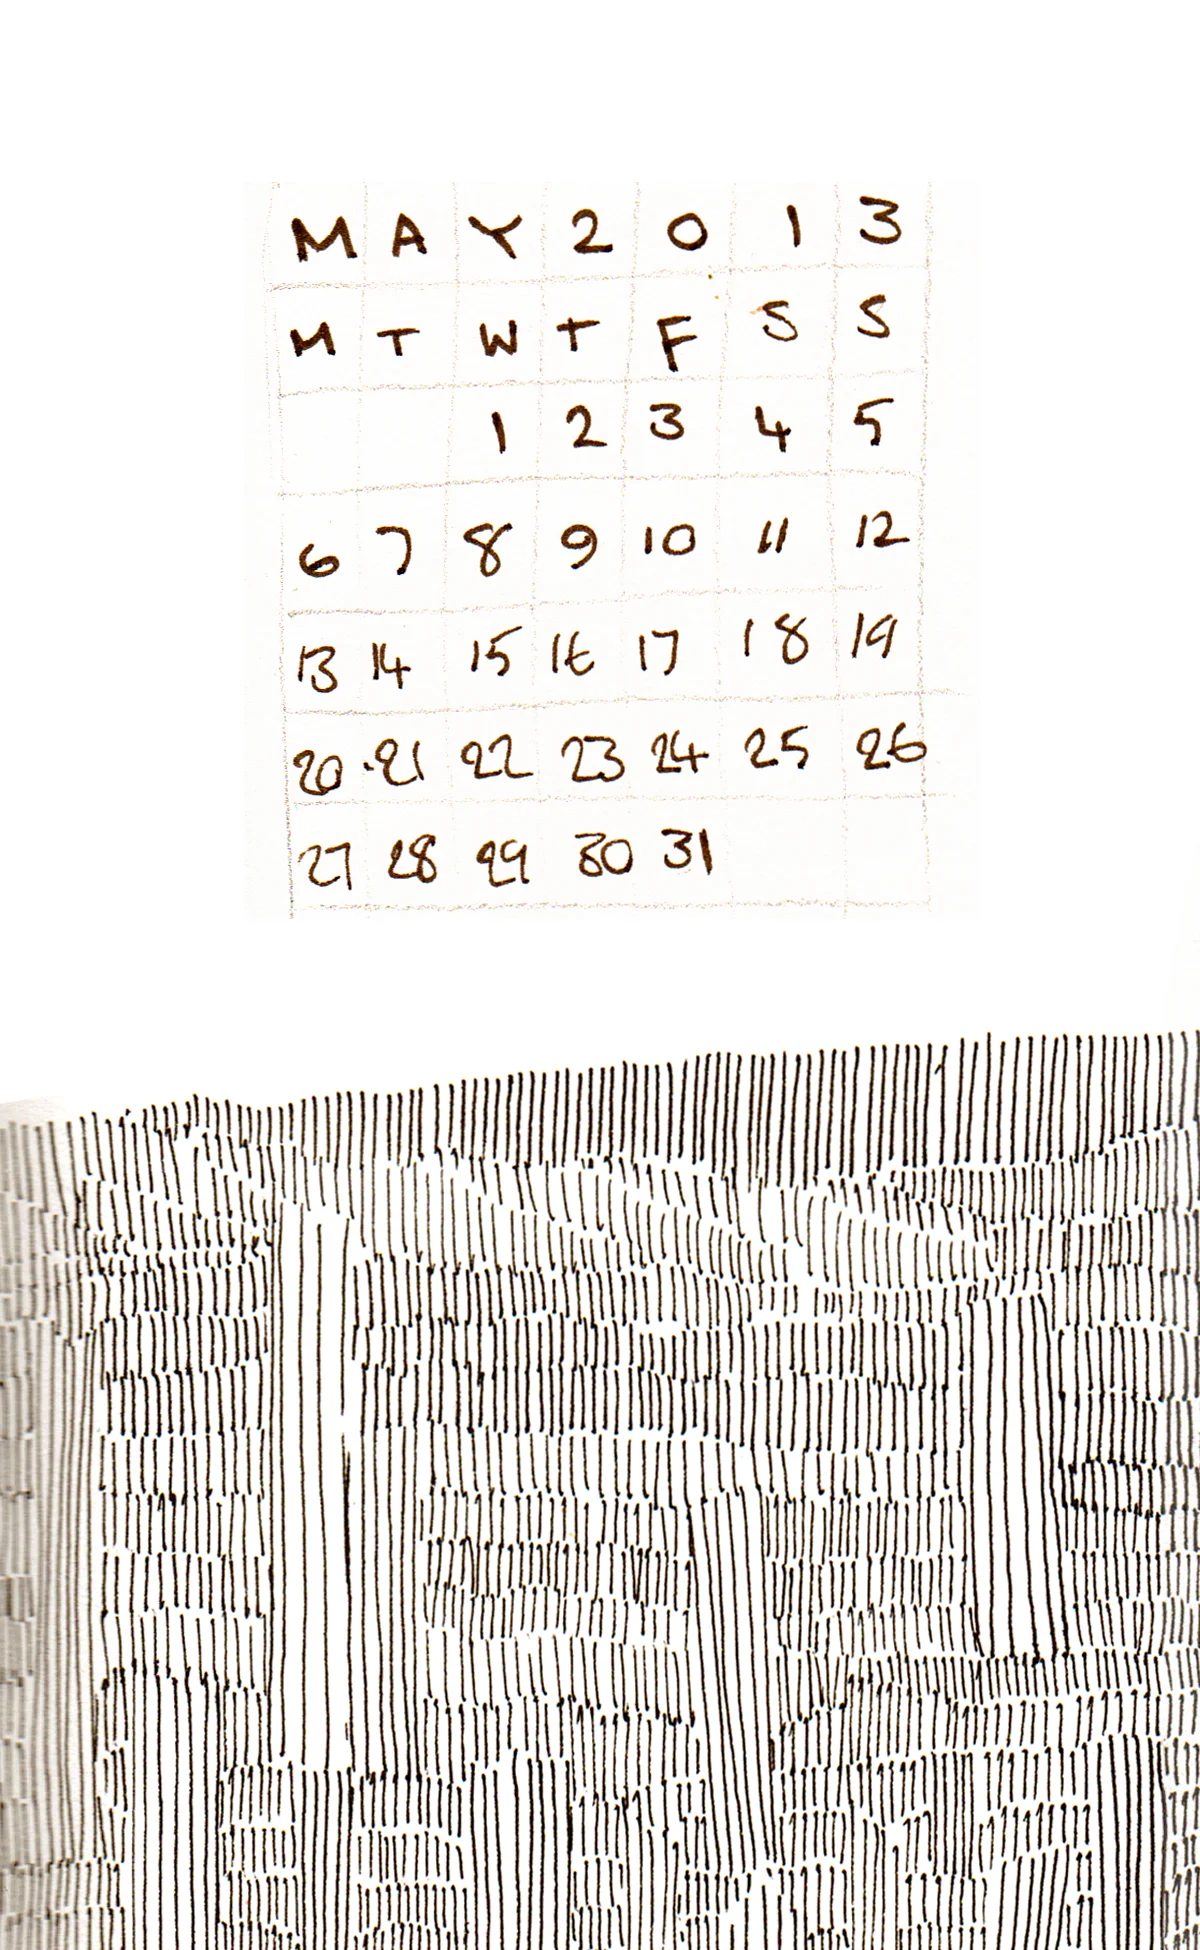 M A Y 2 0 1 3
M T W T F S S
1 2 3 4 5
6 7 8 9 10 11 12
13 14 15 16 17 18 19
20 21 22 23 24 25 26
27 28 29 30 31